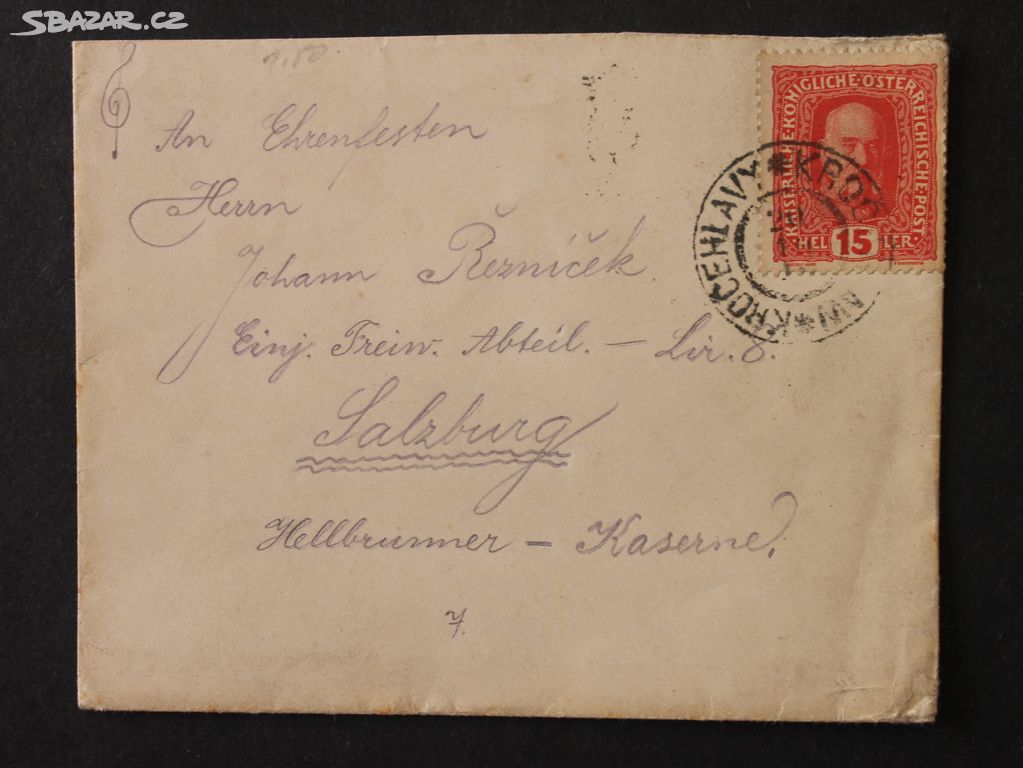 SBAZAR.CZ
1,50
An Ehrenfesten
Herrn
Johann Řezníček
Einj. Freiw. Abteil. –
Salzburg
Hellbrunner – Kaserne.
7.
KAISERLICHE·KÖNIGLICHE·ÖSTERREICHISCHE·POST
HEL 15 LER
KROČEHLAVY * KROČ * KROČEHLAVY